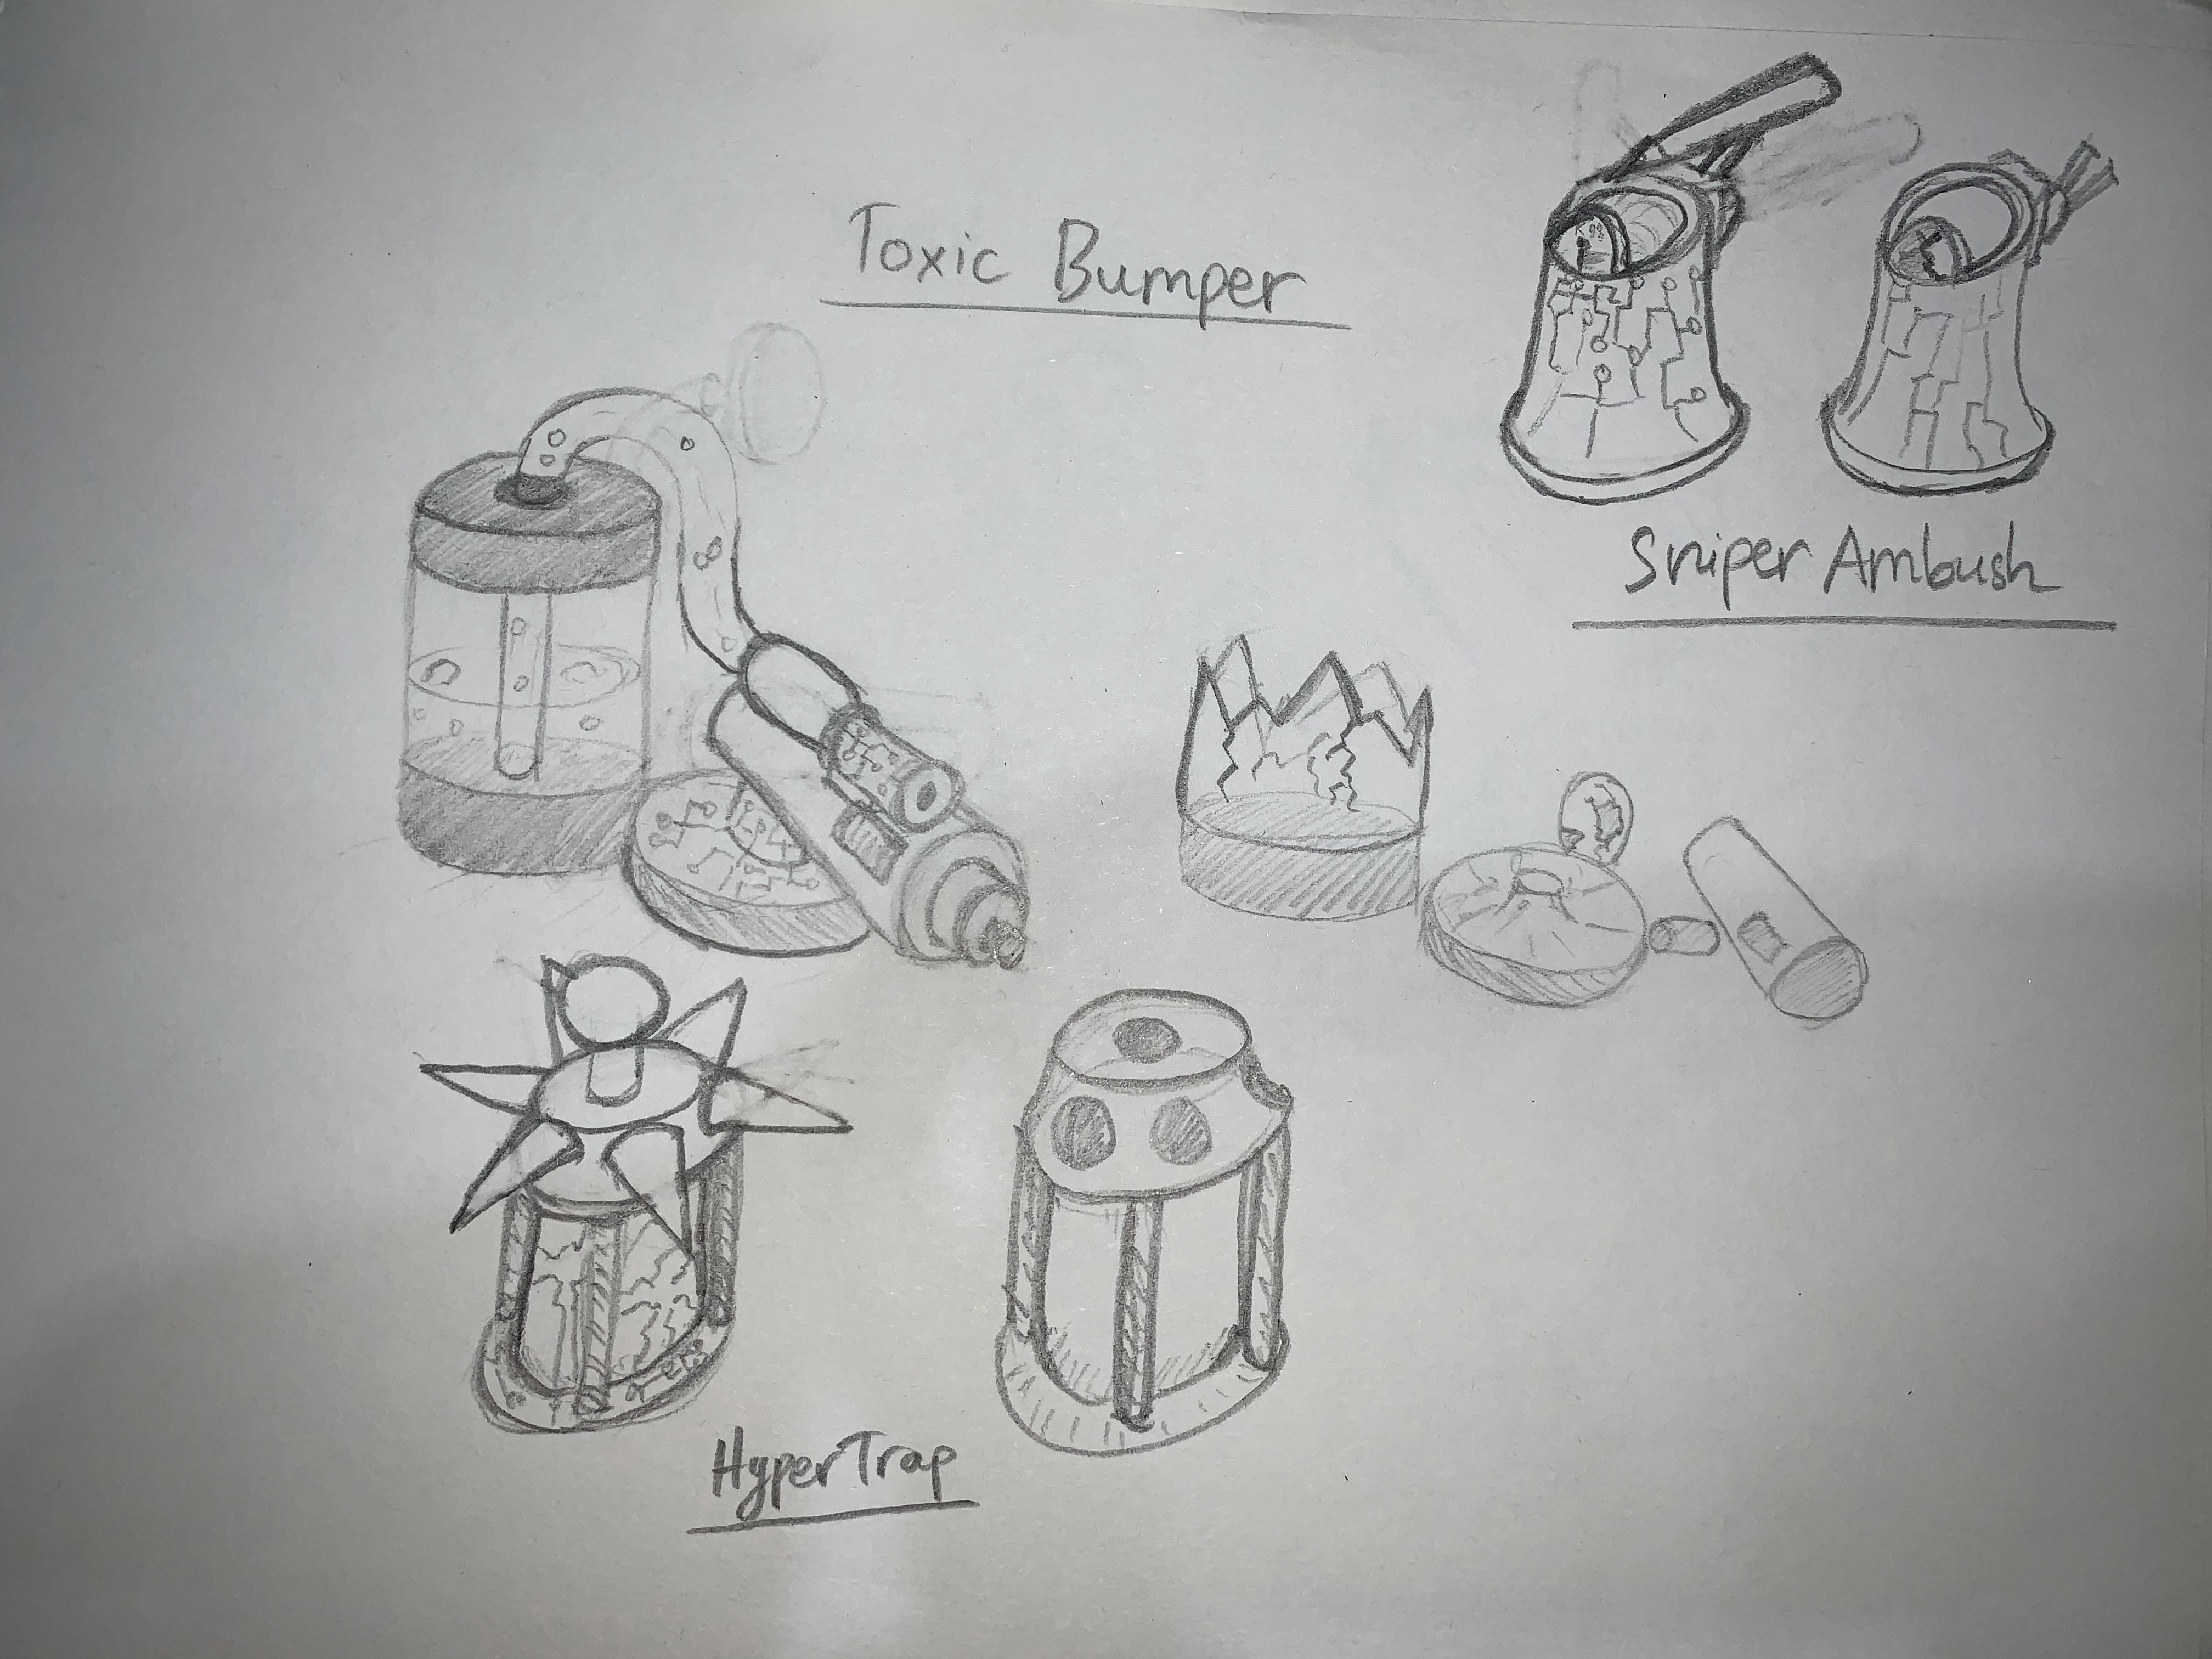 Toxic Bumper
Sniper Ambush
HyperTrap